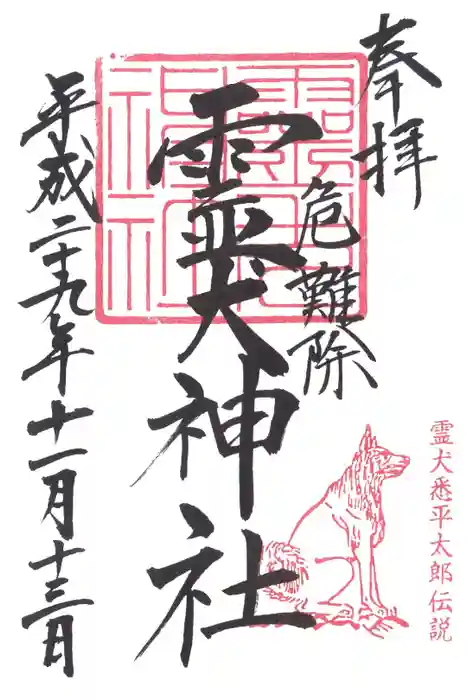 奉拝
危難除
霊犬神社
平成二十九年十一月十三日
霊犬悉平太郎伝説